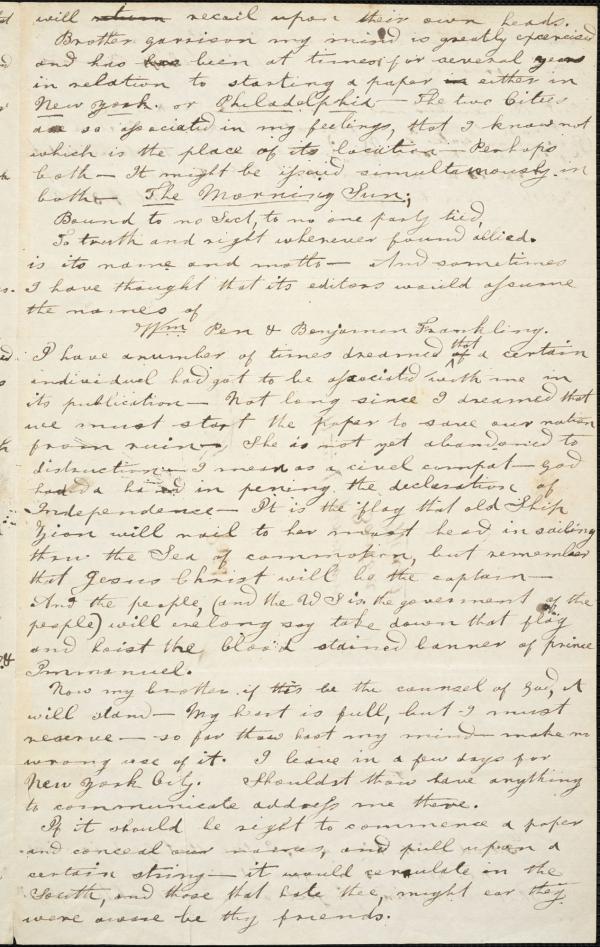 will return recoil upon their own heads.
Brother garrison my mind is greatly exercised
and has been at times for several years
in relation to starting a paper in either in
New York. or Philadelphia — The two Cities
are so associated in my feelings, that I know not
which is the place of its location — Perhaps
both — It might be issued simultaniously in
both — The Morning Sun;
Bound to no Sect, to no one party tied,
To truth and right wherever found allied.
is its name and motto — And sometimes
I have thought that its editors would assume
the names of
Wm Pen & Benjamin Frankling.
I have a number of times dreamed of that a certain
individuel had got to be associated with me in
its publication — Not long since I dreamed that
we must start the paper to save our nation
from ruin — She is not yet abandoned to
distruction — I mean as a civel compat — God
had a hand in pening the decleration of
Independence — It is the flag that old Ship
Zion will nail to her mast head in sailing
thru the Sea of commotion, but remember
that Jesus Christ will be the captain —
And the people, (and the U S is the goverment of the
people) will erelong say take down that flag
and hoist the blood stained banner of prince
Immanuel.
Now my brother if this be the counsel of God, it
will stand — My heart is full, but I must
reserve — so far thou hast my mind — make no
wrong use of it. I leave in a few days for
New York City. Shouldst thou have anything
to communicate address me there.
If it should be right to commence a paper
and conceal our names, and pull upon a
certain string — it would cerculate in the
South, and those that hate thee, might ear they
were aware be thy friends.